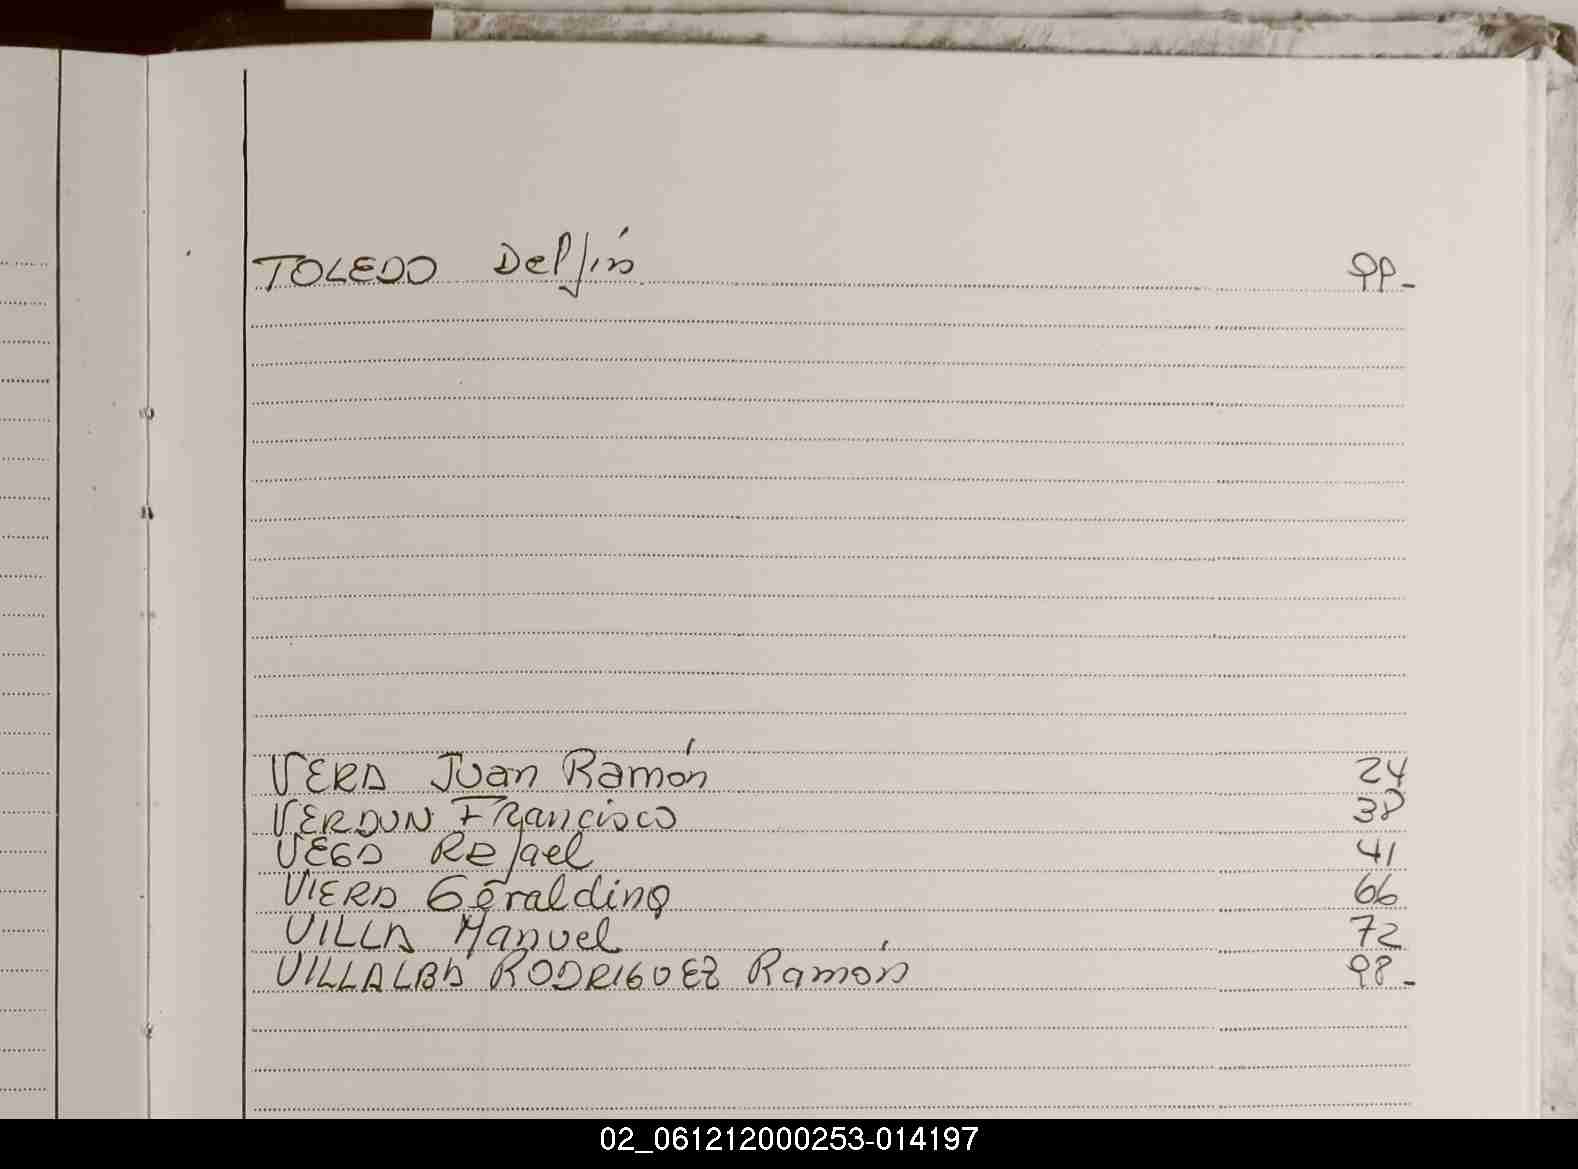 TOLEDO Delfín 99-
VERA Juan Ramón 24
VERDUN Francisco 38
VEGA Rafael 41
VIERA Geraldino 66
VILLA Manuel 72
VILLALBA RODRIGUEZ Ramón 98-
02_061212000253-014197